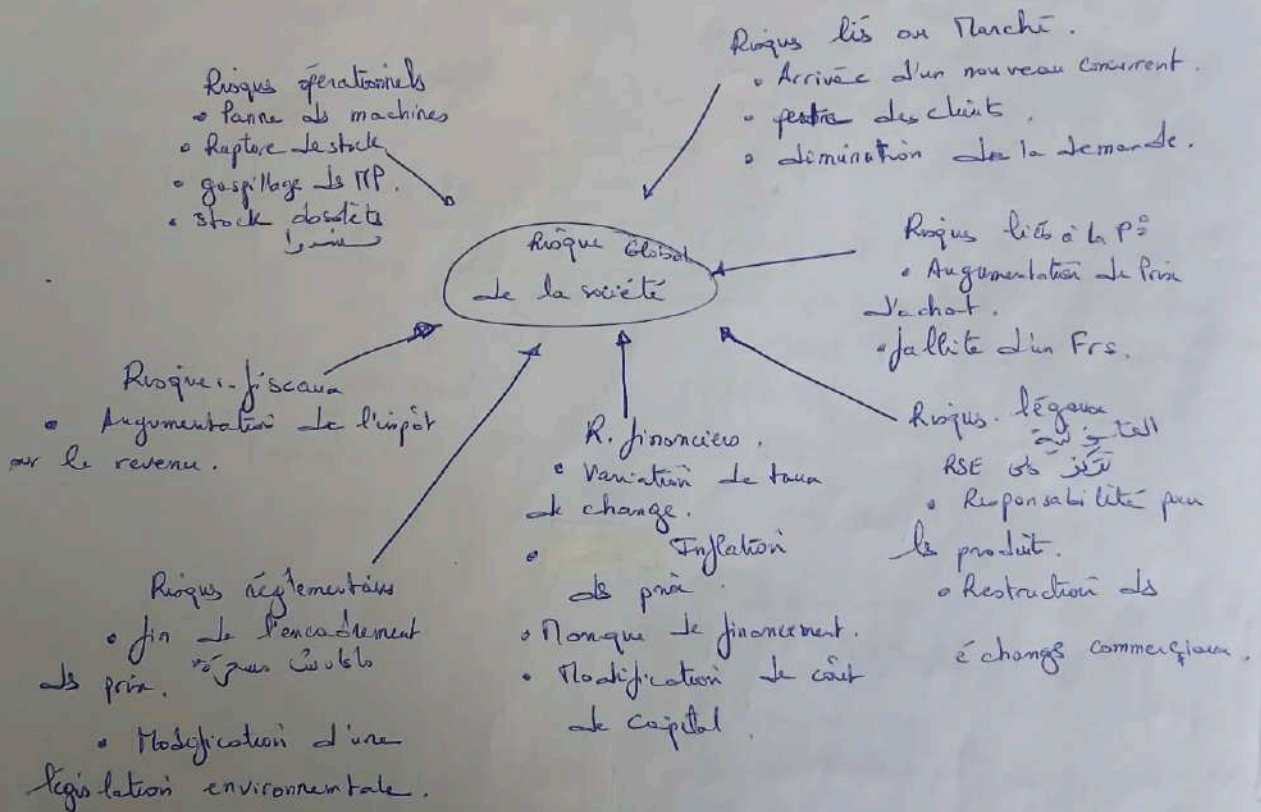 Risques opérationnels
• Panne ds machines
• Rupture de stock
• gaspillage ds MP.
• stock obsolèts
Risqus liés au Marché.
• Arrivée d'un nouveau concurrent.
• perte des clients.
• diminution de la demande.
Risque Global
de la société
Risqus liés à la P°:
• Augumentation de Prix
d'achat.
• faillite d'un Frs.
Risques fiscaux
• Augumentation de l'impôt
sur le revenu.
R. financiers.
• Variation de taux
de change.
• Inflation
ds prix.
• Manque de financement.
• Modification de coût
de capital
Risqus légaux
القانونية
RSE تركز على
• Responsabilité pour
ls produit.
• Restruction ds
échangs commerçiaux.
Risqus réglementairs
• fin de l'encadrement
ds prix.
• Modification d'une
législation environnementale.